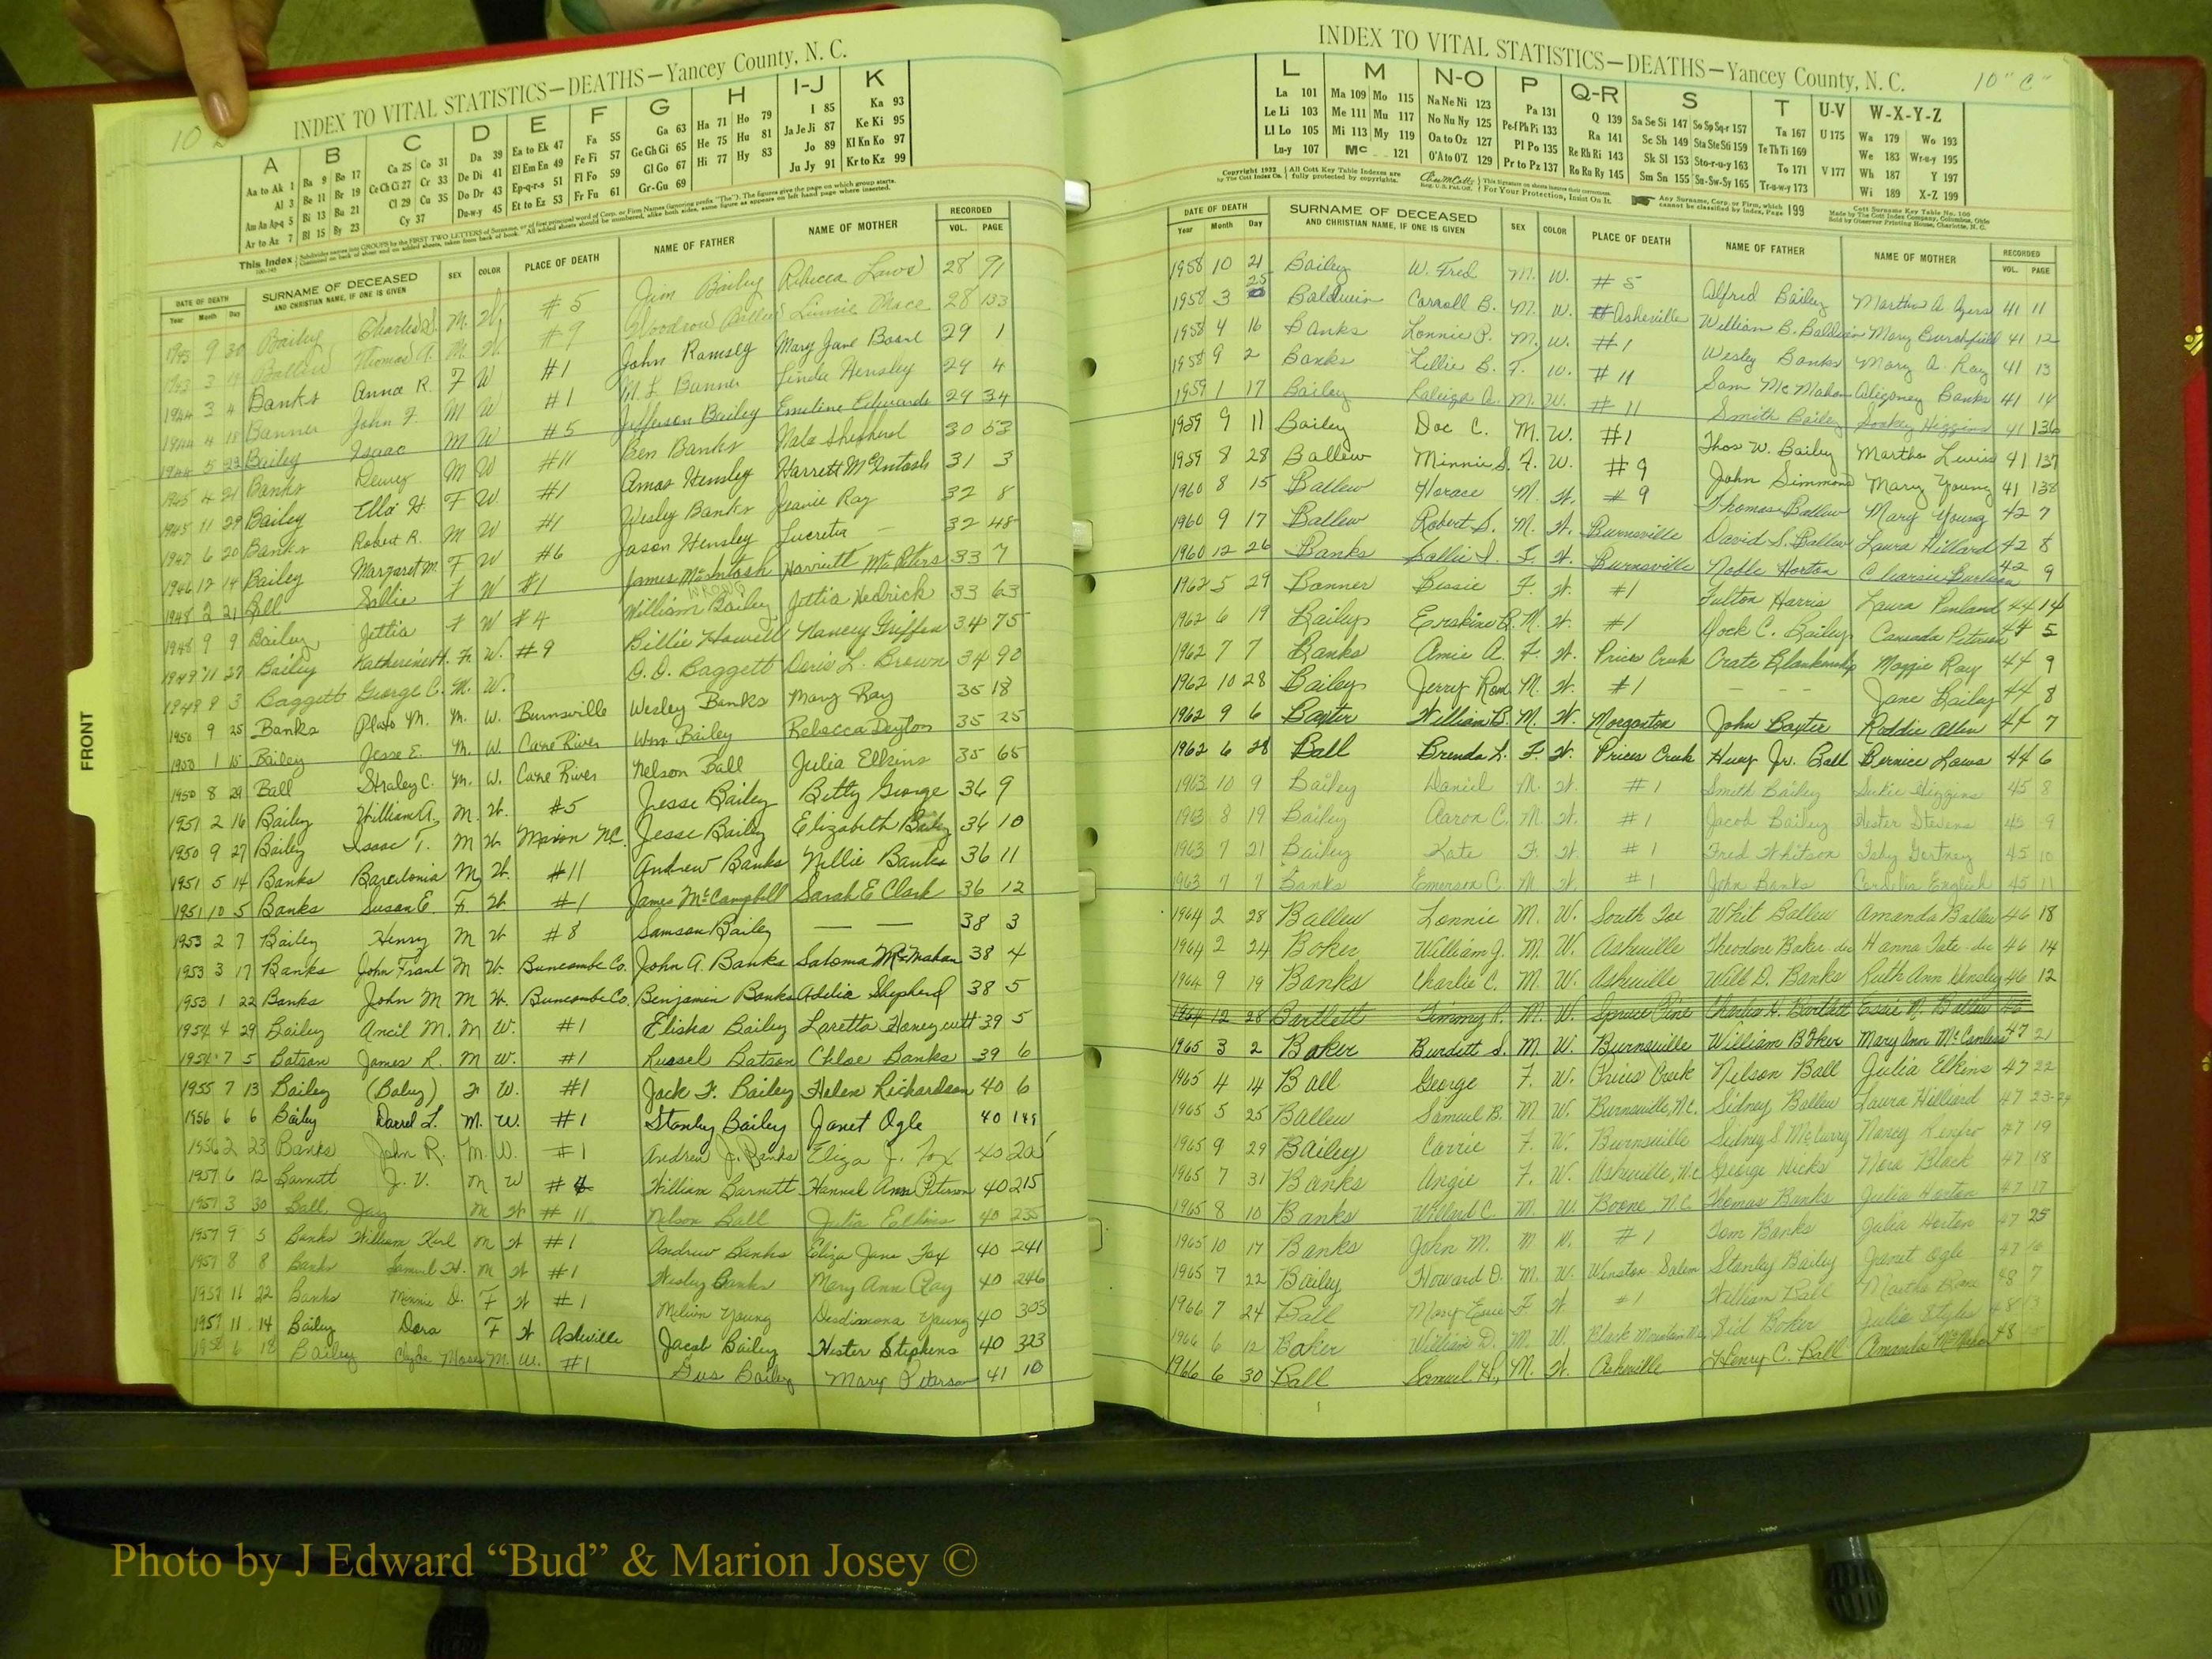 10
INDEX TO VITAL STATISTICS—DEATHS—Yancey County, N. C.
A B C D E F G H I-J K
Aa to Ak 1 Ba 9 Bo 17 Ca 25 Co 31 Da 39 Ea to Ek 47 Fa 55 Ga 63 Ha 71 Ho 79 I 85 Ka 93
Al 3 Be 11 Br 19 Ce Ch Ci 27 Cr 33 De Di 41 El Em En 49 Fe Fi 57 Ge Gh Gi 65 He 75 Hu 81 Ja Je Ji 87 Ke Ki 95
Am An Ap-q 5 Bi 13 Bu 21 Cl 29 Cu 35 Do Dr 43 Ep-q-r-s 51 Fl Fo 59 Gl Go 67 Hi 77 Hy 83 Jo 89 Kl Kn Ko 97
Ar to Az 7 Bl 15 By 23 Cy 37 Du-w-y 45 Et to Ez 53 Fr Fu 61 Gr-Gu 69 Ju Jy 91 Kr to Kz 99
DATE OF DEATH SURNAME OF DECEASED SEX COLOR PLACE OF DEATH NAME OF FATHER NAME OF MOTHER RECORDED
Year Month Day AND CHRISTIAN NAME, IF ONE IS GIVEN VOL. PAGE
1943 9 30 Bailey Charles S. M. W. #5 Jim Bailey Rebecca Laws 28 91
Ballew Thomas A. M. W. #9 Woodrow Ballew Linnie Mace 28 133
1944 3 4 Banks Anna R. F W #1 John Ramsey Mary Jane Boone 29 1
1944 4 18 Banner John F. M W #1 Banner Linda Hensley 29 4
1944 5 22 Bailey Isaac M W #5 Jefferson Bailey Emeline Edwards 29 34
1945 4 21 Banks Dewey M W #11 Ben Banks Shepherd 30 53
1945 11 29 Bailey Ella H. F W. #1 Amos Hensley Harrett McIntosh 31 3
1947 6 20 Banks Robert R. M W #1 Wesley Banks Jeanie Ray 32 8
1946 12 14 Bailey Margaret M. F W #6 Jason Hensley Lucretia — 32 48
1948 2 21 Ball Sallie F W #1 James McIntosh Harriett McPeters 33 7
WRONG
1948 9 9 Bailey Jettia F W #4 William Bailey Jettia Hedrick 33 63
1949 11 27 Bailey Katherine H. F. W. #9 Billie Howell Nancy Griffin 34 75
1949 8 3 Baggett George C. M. W. O. O. Baggett Doris L. Brown 34 90
1950 9 25 Banks Plato M. M. W. Burnsville Wesley Banks Mary Ray 35 18
1950 1 15 Bailey Jesse E. M. W. Cane River Wm. Bailey Rebecca Deyton 35 25
1950 8 29 Ball Straley C. M. W. Cane River Nelson Ball Julia Elkins 35 65
1951 2 16 Bailey William A. M. W. #5 Jesse Bailey Betty George 36 9
1950 9 27 Bailey Isaac T. M W. Maxon NC. Jesse Bailey Elizabeth Bailey 36 10
1951 5 14 Banks M. W. #11 Andrew Banks Nellie Banks 36 11
1951 10 5 Banks Susan E. F. W. #1 James McCampbell Sarah E Clark 36 12
1953 2 7 Bailey Henry M W #8 Samson Bailey — — 38 3
1953 3 17 Banks John Frank M W. Buncombe Co. John A. Banks Saloma McMahan 38 4
1953 1 22 Banks John M M W. Buncombe Co. Benjamin Banks Adelia Shepherd 38 5
1954 4 29 Bailey Ancil M. M W. #1 Elisha Bailey Loretta Honeycutt 39 5
1954 7 5 Batson James R. M W. #1 Russel Batson Chloe Banks 39 6
1955 7 13 Bailey (Baby) F W. #1 Jack F. Bailey Helen Richardson 40 6
1956 6 6 Bailey Darrel L. M. W. #1 Stanley Bailey Janet Ogle 40 149
1956 2 23 Banks John R. M. W. #1 Andrew J. Banks Eliza J. Fox 40 20
1957 6 12 Barnett J. V. M W # William Barnett Hannah Ann Peterson 40 215
1957 3 30 Ball Jay M W #11 Nelson Ball Julia Elkins 40 235
1957 9 5 Banks William Karl M W #1 Andrew Banks Eliza Jane Fox 40 241
1957 8 8 Banks Samuel H. M W #1 Wesley Banks Mary Ann Ray 40 246
1957 11 22 Banks Minnie D. F W #1 Melvin Young Desdimona Young 40 303
1957 11 14 Bailey Dora F W Asheville Jacob Bailey Hester Stephens 40 323
1958 6 18 Bailey Clyde Moses M. W. #1 Gus Bailey Mary Peterson 41 10
FRONT
INDEX TO VITAL STATISTICS—DEATHS—Yancey County, N. C. 10 "C"
L M N-O P Q-R S T U-V W-X-Y-Z
La 101 Ma 109 Mo 115 Na Ne Ni 123 Pa 131 Q 139 Sa Se Si 147 So Sp Sq-r 157 Ta 167 U 175 Wa 179 Wo 193
Le Li 103 Me 111 Mu 117 No Nu Ny 125 Pe-f Ph Pi 133 Ra 141 Sc Sh 149 Sta Ste Sti 159 Te Th Ti 169 We 183 Wr-u-y 195
Ll Lo 105 Mi 113 My 119 Oa to Oz 127 Pl Po 135 Re Rh Ri 143 Sk Sl 153 Sto-r-u-y 163 To 171 V 177 Wh 187 Y 197
Lu-y 107 Mc 121 O'A to O'Z 129 Pr to Pz 137 Ro Ru Ry 145 Sm Sn 155 Su-Sw-Sy 165 Tr-u-w-y 173 Wi 189 X-Z 199
DATE OF DEATH SURNAME OF DECEASED SEX COLOR PLACE OF DEATH NAME OF FATHER NAME OF MOTHER RECORDED
Year Month Day AND CHRISTIAN NAME, IF ONE IS GIVEN VOL. PAGE
1958 10 21 Bailey W. Fred M. W. #5 Alfred Bailey Martha A Ayers 41 11
1958 3 25 Baldwin Carroll B. M. W. #Asheville William B. Baldwin Mary Burchfield 41 12
1958 4 16 Banks Lonnie P. M. W. #1 Wesley Banks Mary A. Ray 41 13
1958 9 2 Banks Lillie B. F. W. #11 Sam McMahan Banks 41 14
1959 1 17 Bailey A. M. W. #11 Smith Bailey Higgins 41 136
1959 9 11 Bailey Doc C. M. W. #1 Thos W. Bailey Martha Lewis 41 137
1959 8 28 Ballew Minnie S. F. W. #9 John Simmons Mary Young 41 138
1960 8 15 Ballew Horace M. W. #9 Thomas Ballew Mary Young 42 7
1960 9 17 Ballew Robert S. M. W. Burnsville David S. Ballew Laura Hillard 42 8
1960 12 26 Banks Sallie F. W. Burnsville Noble Horton 42 9
1962 5 29 Banner Bessie F. W. #1 Fulton Harris Laura Penland 44 14
1962 6 19 Bailey Erskine B. M. W. #1 Dock C. Bailey Canada Peterson 44 5
1962 7 7 Banks Amie A. F. W. Prices Creek Crate Blankenship Maggie Ray 44 9
1962 10 28 Bailey Jerry Ron M. W. #1 — — — Jane Bailey 44 8
1962 9 6 Baxter William B. M. W. Morganton John Baxter Roddie Allen 44 7
1962 6 28 Ball Brenda L. F. W. Prices Creek Huey Jr. Ball Bernice Laws 44 6
1963 10 9 Bailey Daniel M. W. #1 Smith Bailey Sukie Higgins 45 8
1963 8 19 Bailey Aaron C. M. W. #1 Jacob Bailey Hester Stevens 45 9
1963 7 21 Bailey Kate F. W. #1 Fred Whitson Gortney 45 10
1963 7 7 Banks Emerson C. M W. #1 John Banks Cordelia English 45 11
1964 2 28 Ballew Lonnie M. W. South Toe Whit Ballew Amanda Ballew 46 18
1964 2 24 Boker William J. M. W. Asheville Theodore Baker-dec Hanna Tate-dec 46 14
1964 9 19 Banks Charlie C. M. W. Asheville Will D. Banks Ruth Ann Hensley 46 12
1964 12 28 Bartlett Timmy R. M. W. Spruce Pine Charles H. Bartlett Essie N. Ballew 46
1965 3 2 Baker Burdett S. M. W. Burnsville William Baker Mary Ann McCanless 47 21
1965 4 14 Ball George F. W. Prices Creek Nelson Ball Julia Elkins 47 22
1965 5 25 Ballew Samuel B. M W. Burnsville, N.C. Sidney Ballew Laura Hilliard 47 23-24
1965 9 29 Bailey Carrie F. W. Burnsville Sidney S McCurry Nancy Renfro 47 19
1965 7 31 Banks Angie F. W. Asheville, N.C. George Hicks Nora Black 47 18
1965 8 10 Banks Willard C. M. W. Boone N.C. Thomas Banks Julia Horton 47 17
1965 10 17 Banks John M. M W. #1 Tom Banks Julia Horton 47 25
1965 7 22 Bailey Howard D. M. W. Winston-Salem Stanley Bailey Janet Ogle 47 16
1966 7 24 Ball Mary F W. #1 William Ball Martha 48 7
1966 6 12 Baker William D. M. W. Black Mountain Sid Boker Julia Styles 48
1966 6 30 Ball Samuel H., M. W. Asheville Henry C. Ball Amanda 48
Photo by J Edward “Bud” & Marion Josey ©